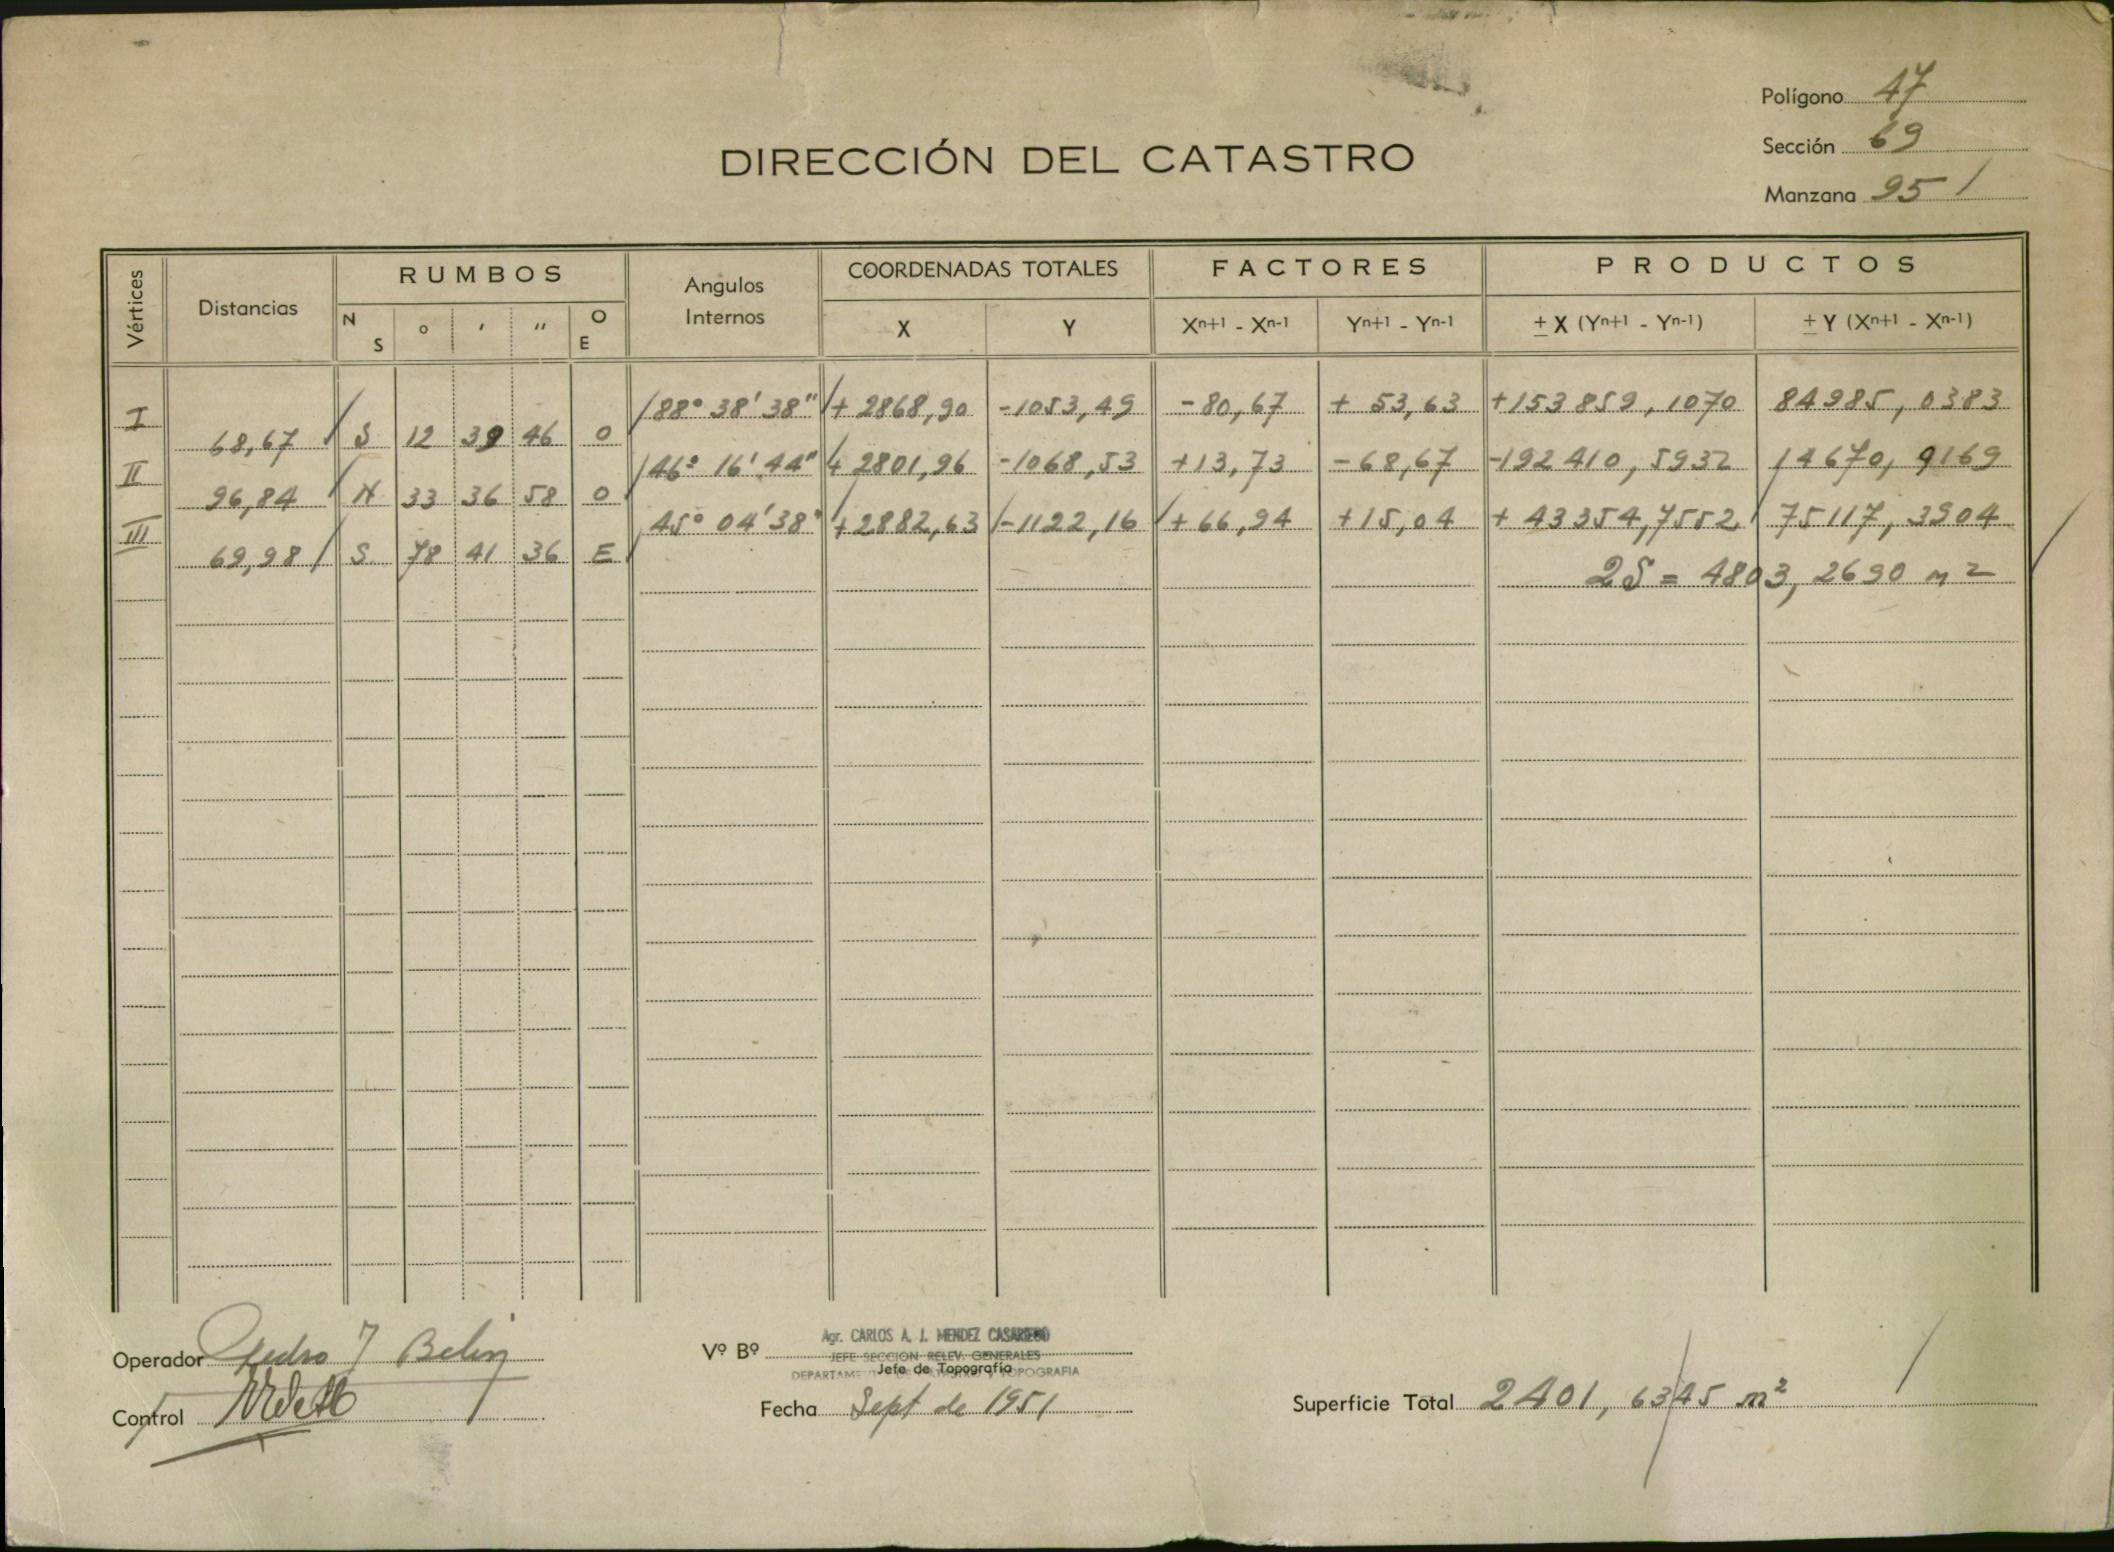 Polígono 47
Sección 69
Manzana 95
DIRECCIÓN DEL CATASTRO
Vértices Distancias RUMBOS Angulos Internos COORDENADAS TOTALES FACTORES PRODUCTOS
N S ° ' " O E X Y Xn+1 - Xn-1 Yn+1 - Yn-1 ± X (Yn+1 - Yn-1) ± Y (Xn+1 - Xn-1)
I 88° 38' 38" + 2868,90 -1053,49 -80,67 + 53,63 +153859,1070 84985,0383
68,67 S 12 39 46 O
II 46° 16' 44" + 2801,96 -1068,53 +13,73 -68,67 -192410,5932 14670,9169
96,84 N 33 36 58 O
III 45° 04' 38" +2882,63 -1122,16 +66,94 +15,04 + 43354,7552 75117,3904
69,98 S 78 41 36 E
2S = 4803,2690 m2
Operador Pedro J Belin
Vº Bº Agr. CARLOS A. J. MENDEZ
JEFE SECCION RELEV. GENERALES
Jefe de Topografía
Control
Fecha Sept de 1951
Superficie Total 2401,6345 m2